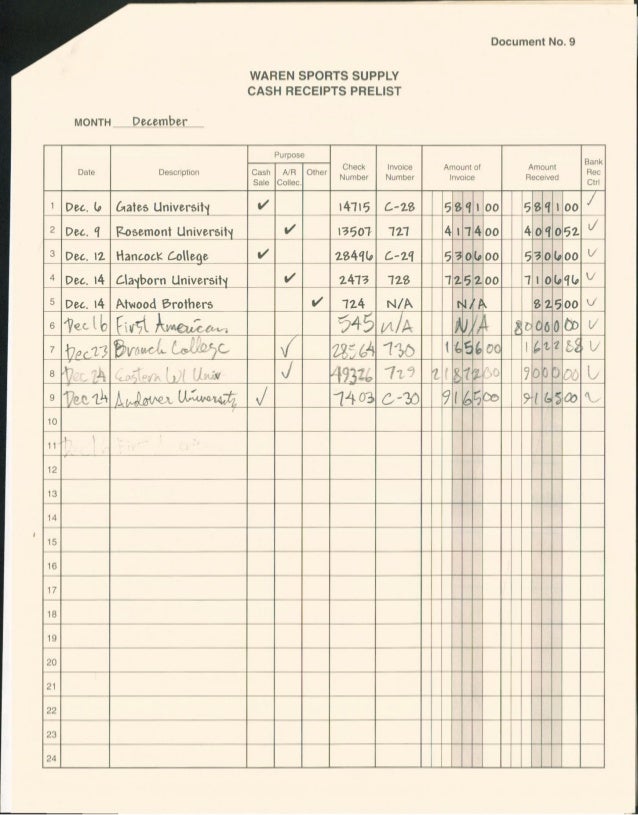 Document No. 9
WAREN SPORTS SUPPLY
CASH RECEIPTS PRELIST
MONTH December
Date Description Purpose Cash Sale A/R Collec. Other Check Number Invoice Number Amount of Invoice Amount Received Bank Rec Ctrl
1 Dec. 6 Gates University ✓ 14715 C-28 5891 00 5891 00 ✓
2 Dec. 9 Rosemont University ✓ 13507 727 4174 00 4090 52 ✓
3 Dec. 12 Hancock College ✓ 28496 C-29 5306 00 5306 00 ✓
4 Dec. 14 Clayborn University ✓ 2473 728 7252 00 7106 96 ✓
5 Dec. 14 Atwood Brothers ✓ 724 N/A N/A 825 00 ✓
6 Dec 16 First American 545 N/A N/A 80000 00 ✓
7 Dec 23 Branch College ✓ 28564 730 1656 00 1622 88 ✓
8 Dec 24 Eastern WI Univ ✓ 49326 729 21872 00 9000 00 ✓
9 Dec 24 Andover University ✓ 7403 C-30 9165 00 9165 00 ✓
10
11
12
13
14
15
16
17
18
19
20
21
22
23
24